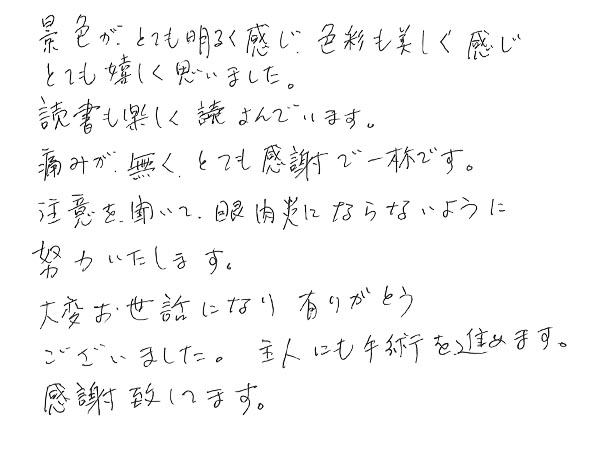 景色が、とても明るく感じ、色彩も美しく感じ
とても嬉しく思いました。
読書も楽しく読よんでいます。
痛みが、無く、とても感謝で一杯です。
注意を、聞いて、眼内炎にならないように
努力いたします。
大変お世話になり有りがとう
ございました。主人にも手術を進めます。
感謝致してます。